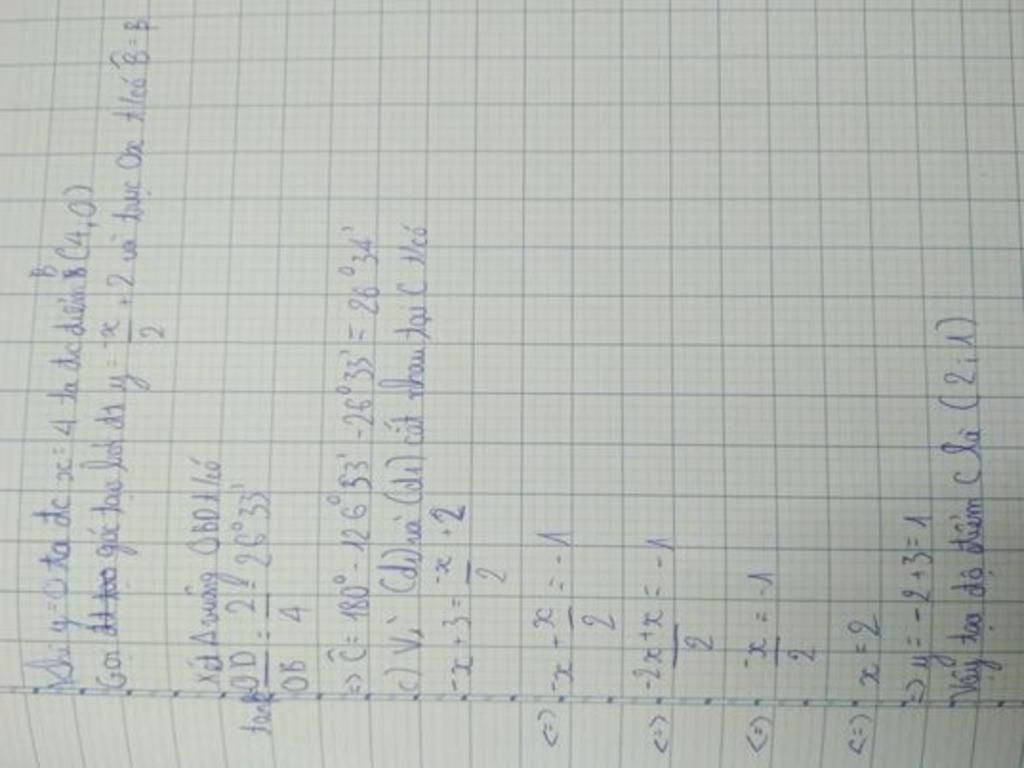 Khi y=0 ta đc x = 4 ta đc điểm B (4,0)
B
Gọi góc tạo bởi đt y = -x/2 + 2 và trục Ox ta có B̂ = β
Xét Δ vuông OBD ta có
tanβ = OD/OB = 2/4 = 26°33'
=> Ĉ = 180° - 126°53' - 26°33' = 26°34'
c) Vì (d) và (d1) cắt nhau tại C ta có
-x + 3 = -x/2 + 2
<=> -x - -x/2 = -1
<=> -2x+x/2 = -1
<=> -x/2 = -1
<=> x = 2
=> y = -2+3 = 1
Vậy tọa độ điểm C là (2;1)